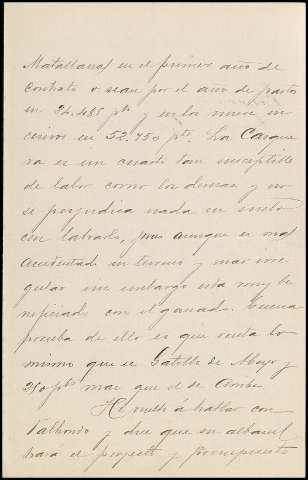 Matallanas en el primer año de
contrato o sean por el año de pasto
en 34.485 pts y en la nueve
cesivos en 52.750 pts. La Casque
ra es un cuarto tan susceptible
de labor como los demas y no
se perjudica nada en suelo
con labrarlo, pues aunque es mas
accidentado su terreno y mas irre
gular sin embargo esta muy be
neficiado con el ganado. Buena
prueba de ello es que renta lo
mismo que el Gatillo de Abajo y
250 pts mas que el de Arriba
He vuelto á hablar con
Talhondo y dice que un albanil
hara el proyecto y presupuesto